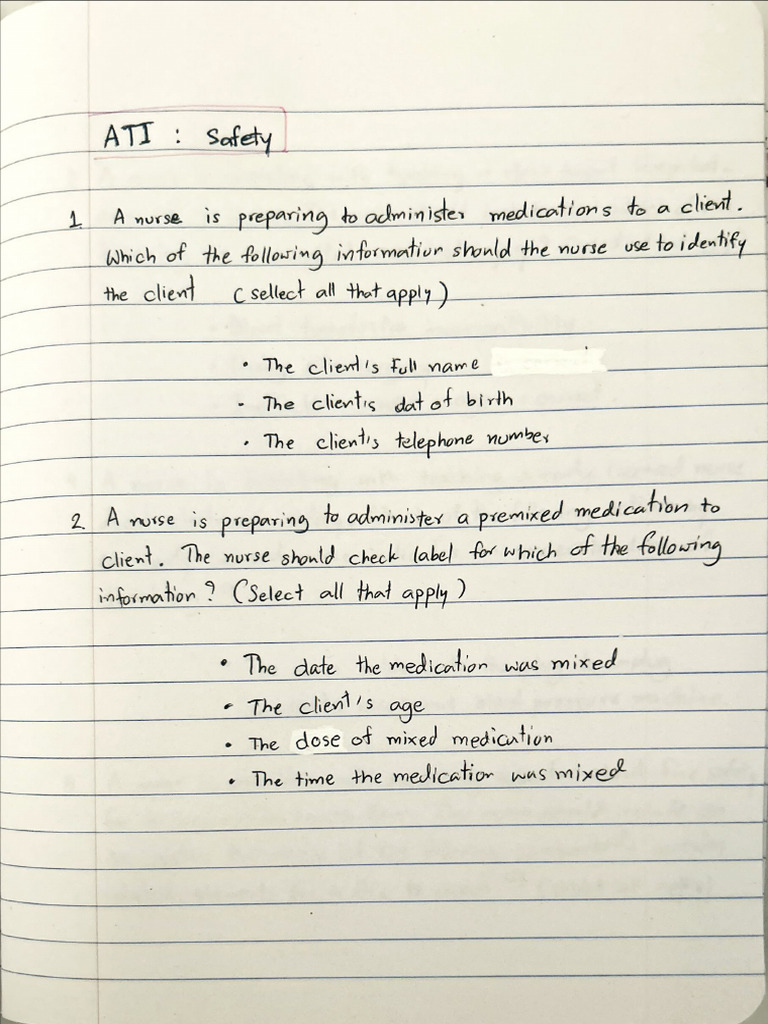 ATI : Safety
1. A nurse is preparing to administer medications to a client.
Which of the following information should the nurse use to identify
the client (sellect all that apply)
• The client's full name
- The client's dat of birth
• The client's telephone number
2. A nurse is preparing to administer a premixed medication to
client. The nurse should check label for which of the following
information? (Select all that apply)
• The date the medication was mixed
• The client's age
• The dose of mixed medication
• The time the medication was mixed